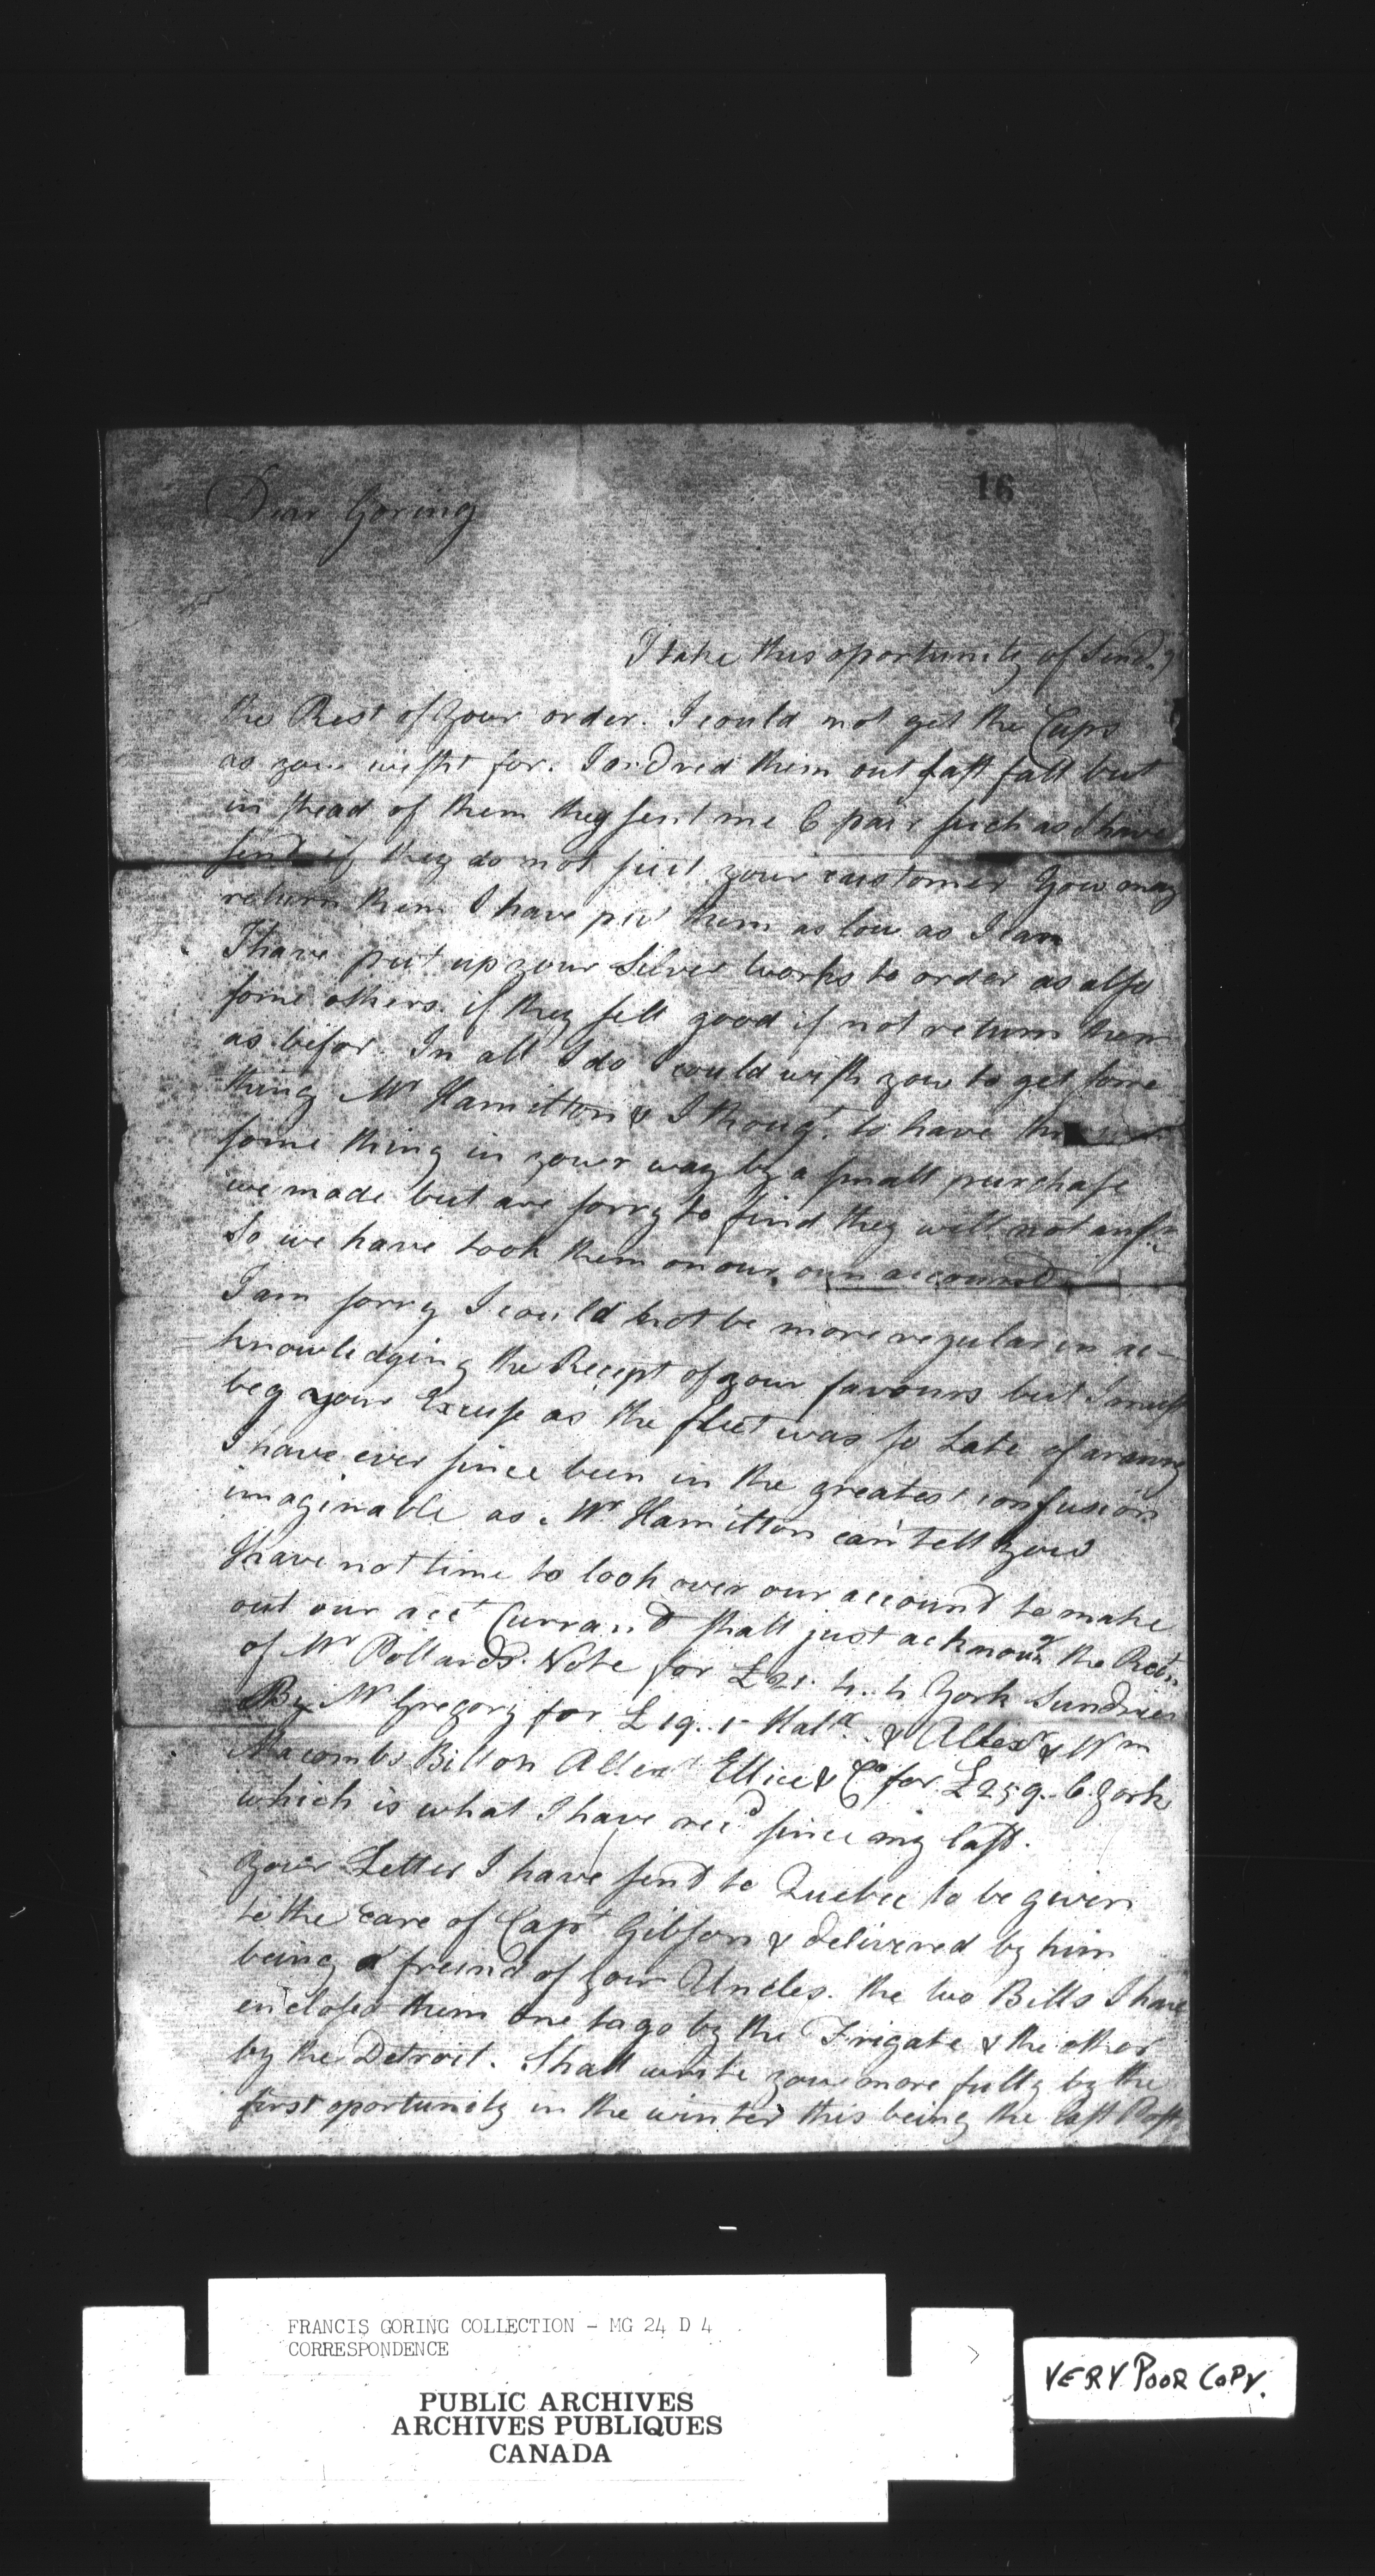 16
Dear Goring
I take this oportunity of Send.g
the Rest of your order. I could not get the Caps
as you wisht for. I ordred them out last fall but
in stead of them they sent me 6 pair such as I have
send if they do not suit your customer You may
return them I have put them as low as I can
I have put up your Silver works to order as also
some others. if they sell good if not return them
as befor. In all I do I could wish you to get some
thing Mr Hamilton & I thougt to have
some thing in your way by a small purchase
we made but are sorry to find they will not answ
So we have took them on our own accound
I am sorry I could not be more regular in ac-
knowledging the Recept of your favours but I must
beg your Excuse as the fleet was so Late of araving
I have ever since been in the greatest confusion
imaginable as Mr Hamilton can tell you
I have not time to look over our accound to make
out our acct Currand shall just acknowg the Rect
of Mr Pollards Note for £21. 4. 4 York Sundries
By Mr Gregory for £19. 1- Halx & Alexr & Wm
Macombs Bill on Alexr Ellice & Co for £259. 6 York
which is what I have recd since my last.
Your Letter I have send to Quebec to be given
to the care of Capt Gibson & delivered by him
being a freind of your Uncles. the two Bills I have
inclosed them one to go by the Frigate & the other
by the Detroit. Shall write you more fully by the
first oportunity in the winter this being the last Post
FRANCIS GORING COLLECTION - MG 24 D 4
CORRESPONDENCE
PUBLIC ARCHIVES
ARCHIVES PUBLIQUES
CANADA
VERY POOR COPY.